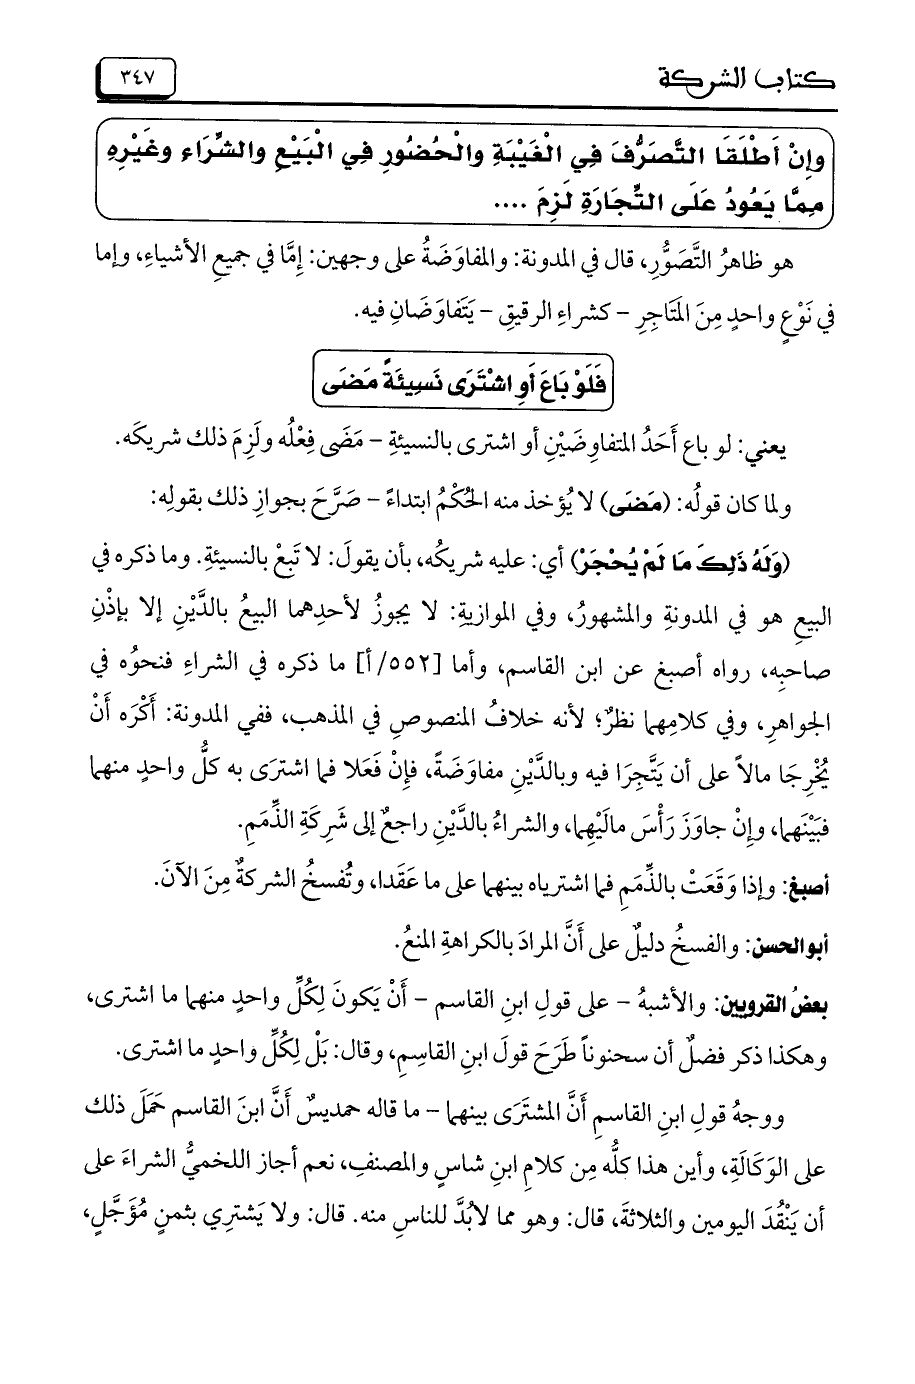 كتاب الشركة
٣٤٧
وإنْ أَطْلَقَا التَّصَرُّفَ فِي الْغَيْبَةِ والْحُضُورِ فِي الْبَيْعِ والشِّرَاءِ وغَيْرِهِ
مِمَّا يَعُودُ عَلَى التِّجَارَةِ لَزِمَ ....
هو ظاهرُ التَّصَوُّرِ، قال في المدونة: والمفاوَضَةُ على وجهين: إِمَّا في جميعِ الأشياءِ، وإما
في نَوْعٍ واحدٍ مِنَ المَتَاجِرِ – كشراءِ الرقيقِ – يَتَفاوَضَانِ فيه.
فَلَوْ بَاعَ أَوِ اشْتَرَى نَسِيئَةً مَضَى
يعني: لو باع أَحَدُ المتفاوِضَيْنِ أو اشترى بالنسيئةِ – مَضَى فِعْلُه ولَزِمَ ذلك شريكَه.
ولما كان قولُه: (مَضَى) لا يُؤخذ منه الحُكْمُ ابتداءً – صَرَّحَ بجوازِ ذلك بقولِه:
(وَلَهُ ذَلِكَ مَا لَمْ يُحْجَرْ) أي: عليه شريكُه، بأن يقولَ: لا تَبِعْ بالنسيئةِ. وما ذكره في
البيعِ هو في المدونةِ والمشهورُ، وفي الموازيةِ: لا يجوزُ لأحدِهما البيعُ بالدَّيْنِ إلا بإذْنِ
صاحبِه، رواه أصبغ عن ابن القاسم، وأما [٥٥٢/أ] ما ذكره في الشراءِ فنحوُه في
الجواهرِ، وفي كلامِهما نظرٌ؛ لأنه خلافُ المنصوصِ في المذهب، ففي المدونة: أَكْرَه أَنْ
يُخْرِجَا مالاً على أن يَتَّجِرَا فيه وبالدَّيْنِ مفاوَضَةً، فإِنْ فَعَلا فما اشترَى به كلُّ واحدٍ منهما
فبَيْنَهما، وإِنْ جاوَزَ رَأْسَ مالَيْهِما، والشراءُ بالدَّيْنِ راجعٌ إلى شَرِكَةِ الذِّمَمِ.
أصبغ: وإذا وَقَعَتْ بالذِّمَمِ فما اشترياه بينهما على ما عَقَدا، وتُفسخُ الشركةُ مِنَ الآنَ.
أبو الحسن: والفسخُ دليلٌ على أَنَّ المرادَ بالكراهةِ المنعُ.
بعضُ القرويين: والأشبهُ – على قولِ ابنِ القاسم – أَنْ يَكونَ لِكُلِّ واحدٍ منهما ما اشترى،
وهكذا ذكر فضلٌ أن سحنوناً طَرَحَ قولَ ابنِ القاسِمِ، وقال: بَلْ لِكُلِّ واحدٍ ما اشترى.
ووجهُ قولِ ابنِ القاسمِ أَنَّ المشتَرَى بينهما – ما قاله حمديسٌ أَنَّ ابنَ القاسم حَمَلَ ذلك
على الوَكَالَةِ، وأين هذا كلُّه مِن كلامِ ابنِ شاسٍ والمصنفِ، نعم أجاز اللخميُّ الشراءَ على
أن يَنْقُدَ اليومين والثلاثةَ، قال: وهو مما لابُدَّ للناسِ منه. قال: ولا يَشتري بثمنٍ مُؤَجَّلٍ،